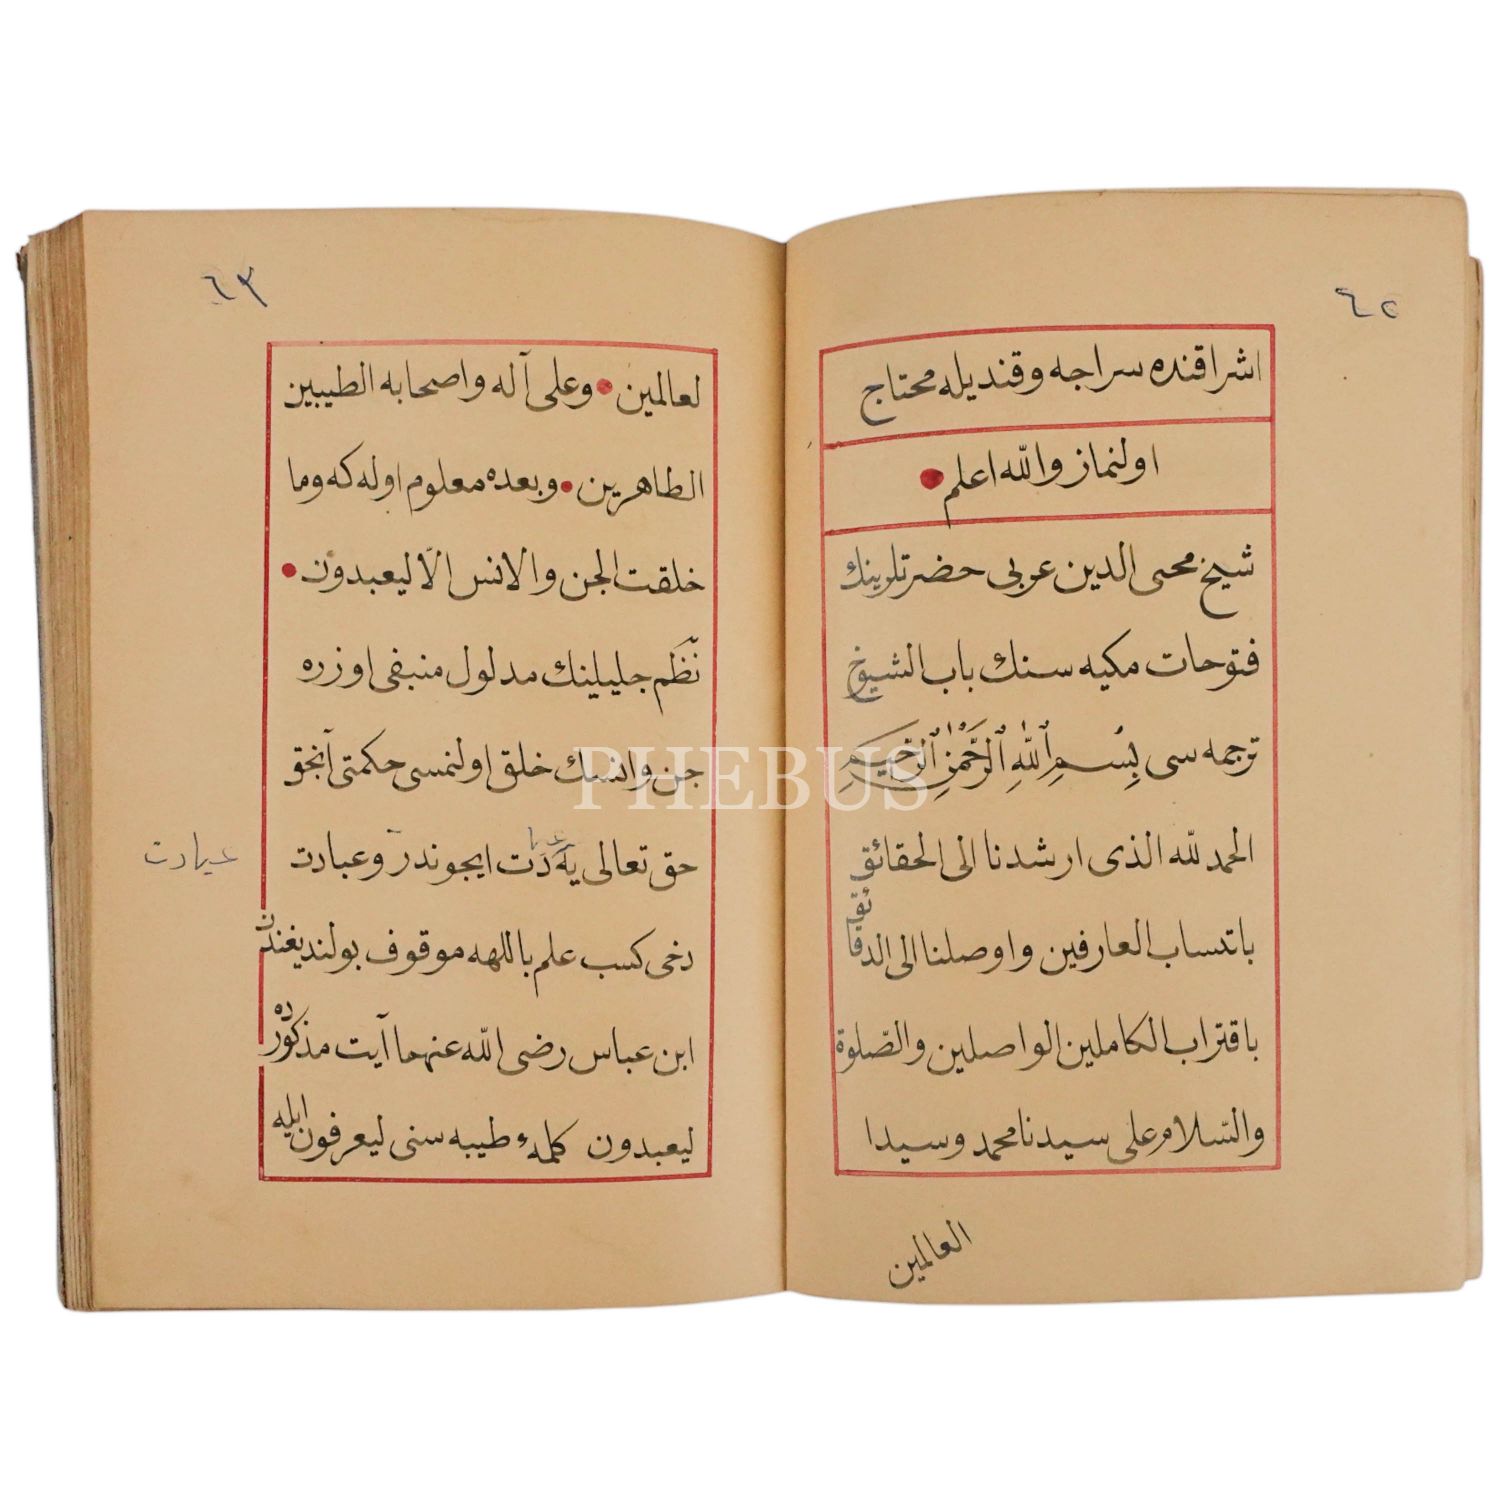 ٦٥
اشراقنده سراجه و قنديله محتاج
اولنماز والله اعلم
شيخ محيى الدين عربى حضرتلرينك
فتوحات مكيه سنك باب الشيوخ
ترجمه سى بِسْمِ ٱللّٰهِ ٱلرَّحْمٰنِ ٱلرَّحِيمِ
الحمد لله الذى ارشدنا الى الحقائق
بانتساب العارفين واوصلنا الى الدقائق
باقتراب الكاملين الواصلين والصّلوة
والسّلام على سيدنا محمد وسيدا
العالمين
٦٣
لعالمين وعلى آله واصحابه الطيبين
الطاهرين وبعده معلوم اوله كه وما
خلقت الجن والانس الّا ليعبدون
نَظْم جليلينك مدلول منبفى اوزره
جن وانسك خلق اولنمسى حكمتى آنجق
حق تعالى يه عبادت ايجوندر وعبادت
عبادت
دخى كسب علم باللهه موقوف بولنديغندن
ابن عباس رضى الله عنهما آيت مذكوره ده
ليعبدون كلمهٔ طيبه سنى ليعرفون ايله
PHEBUS